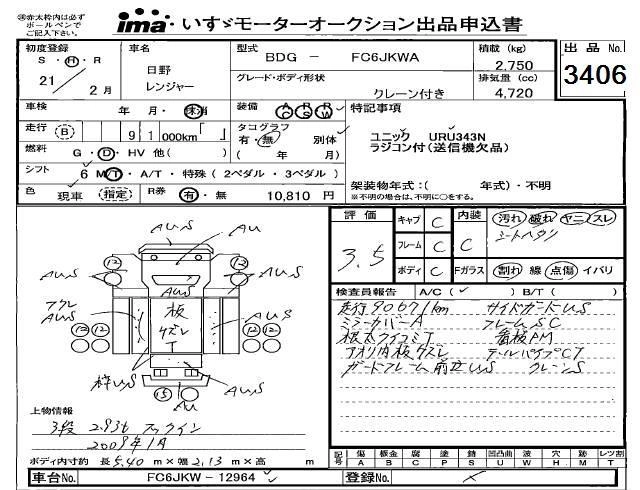 ※赤太枠内は必ず
ボールペンで
ご記入下さい。
ima いすゞモーターオークション出品申込書
初度登録
S・H・R
21 2月
車名
日野
レンジャー
型式
BDG － FC6JKWA
グレード・ボディ形状
クレーン付き
積載(kg)
2,750
排気量(cc)
4,720
出品No.
3406
車検 年 月・抹消
装備 AC PS PW
特記事項
走行 B 91 000km「 」
タコグラフ 有・無 別体
( 年 月)
ユニック URU343N
ラジコン付(送信機欠品)
燃料 G・D・HV 他( )
シフト 6 M/T・A/T・特殊(2ペダル・3ペダル)
色 現車 指定 R券 有・無 10,810 円
架装物年式:( 年式)・不明
※不明の場合は、不明に○をする。
評価
3.5
キャブ C
フレーム C
ボディ C
内装
C
Fガラス
汚れ 破れ ヤニ スレ
シートヘタリ
割れ 線 点傷 イバリ
検査員報告 A/C(✓) B/T( )
走行90671km サイドガードUS
ミラーカバーA フレームSC
根太ライコミT 看板PM
アオリ内板クズレ テールパイプCT
ガードフレーム前立US クレーンS
AUS
AU
12 12
AUS AUS
AUS
アクレ
AUS
板
クズレ
T
AUS
12 12 12 12
枠US
AUS
15
AU
上物情報
3段 2.93t フックイン
2009年1月
ボディ内寸約 長 5.40 m×幅 2.13 m×高 m
記号
傷 板金 腐 塗 錆 凹凸曲 波 穴 跡 レツ割
A B C P S U W H M T
車台No. FC6JKW-12964
登録No.